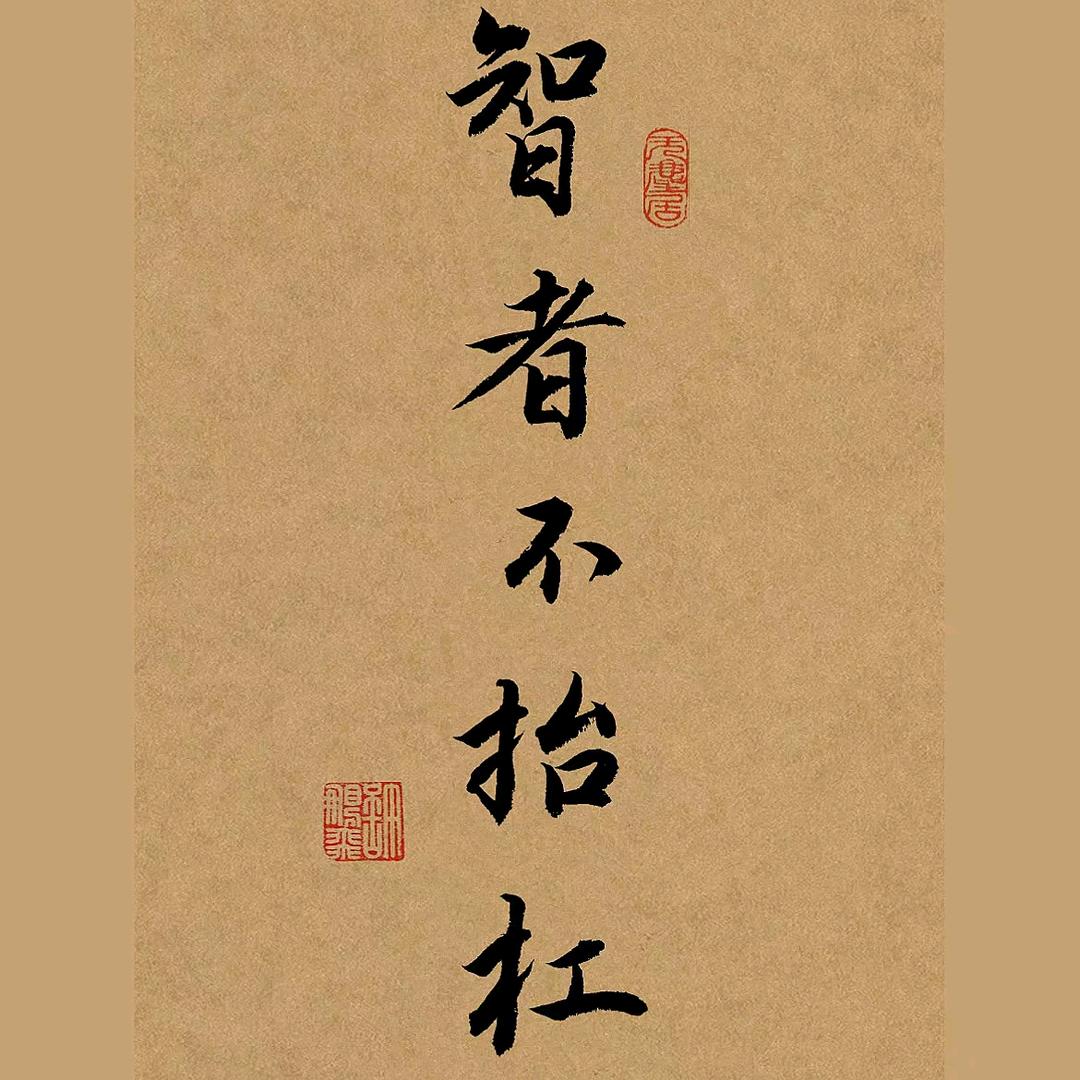 智者不抬杠